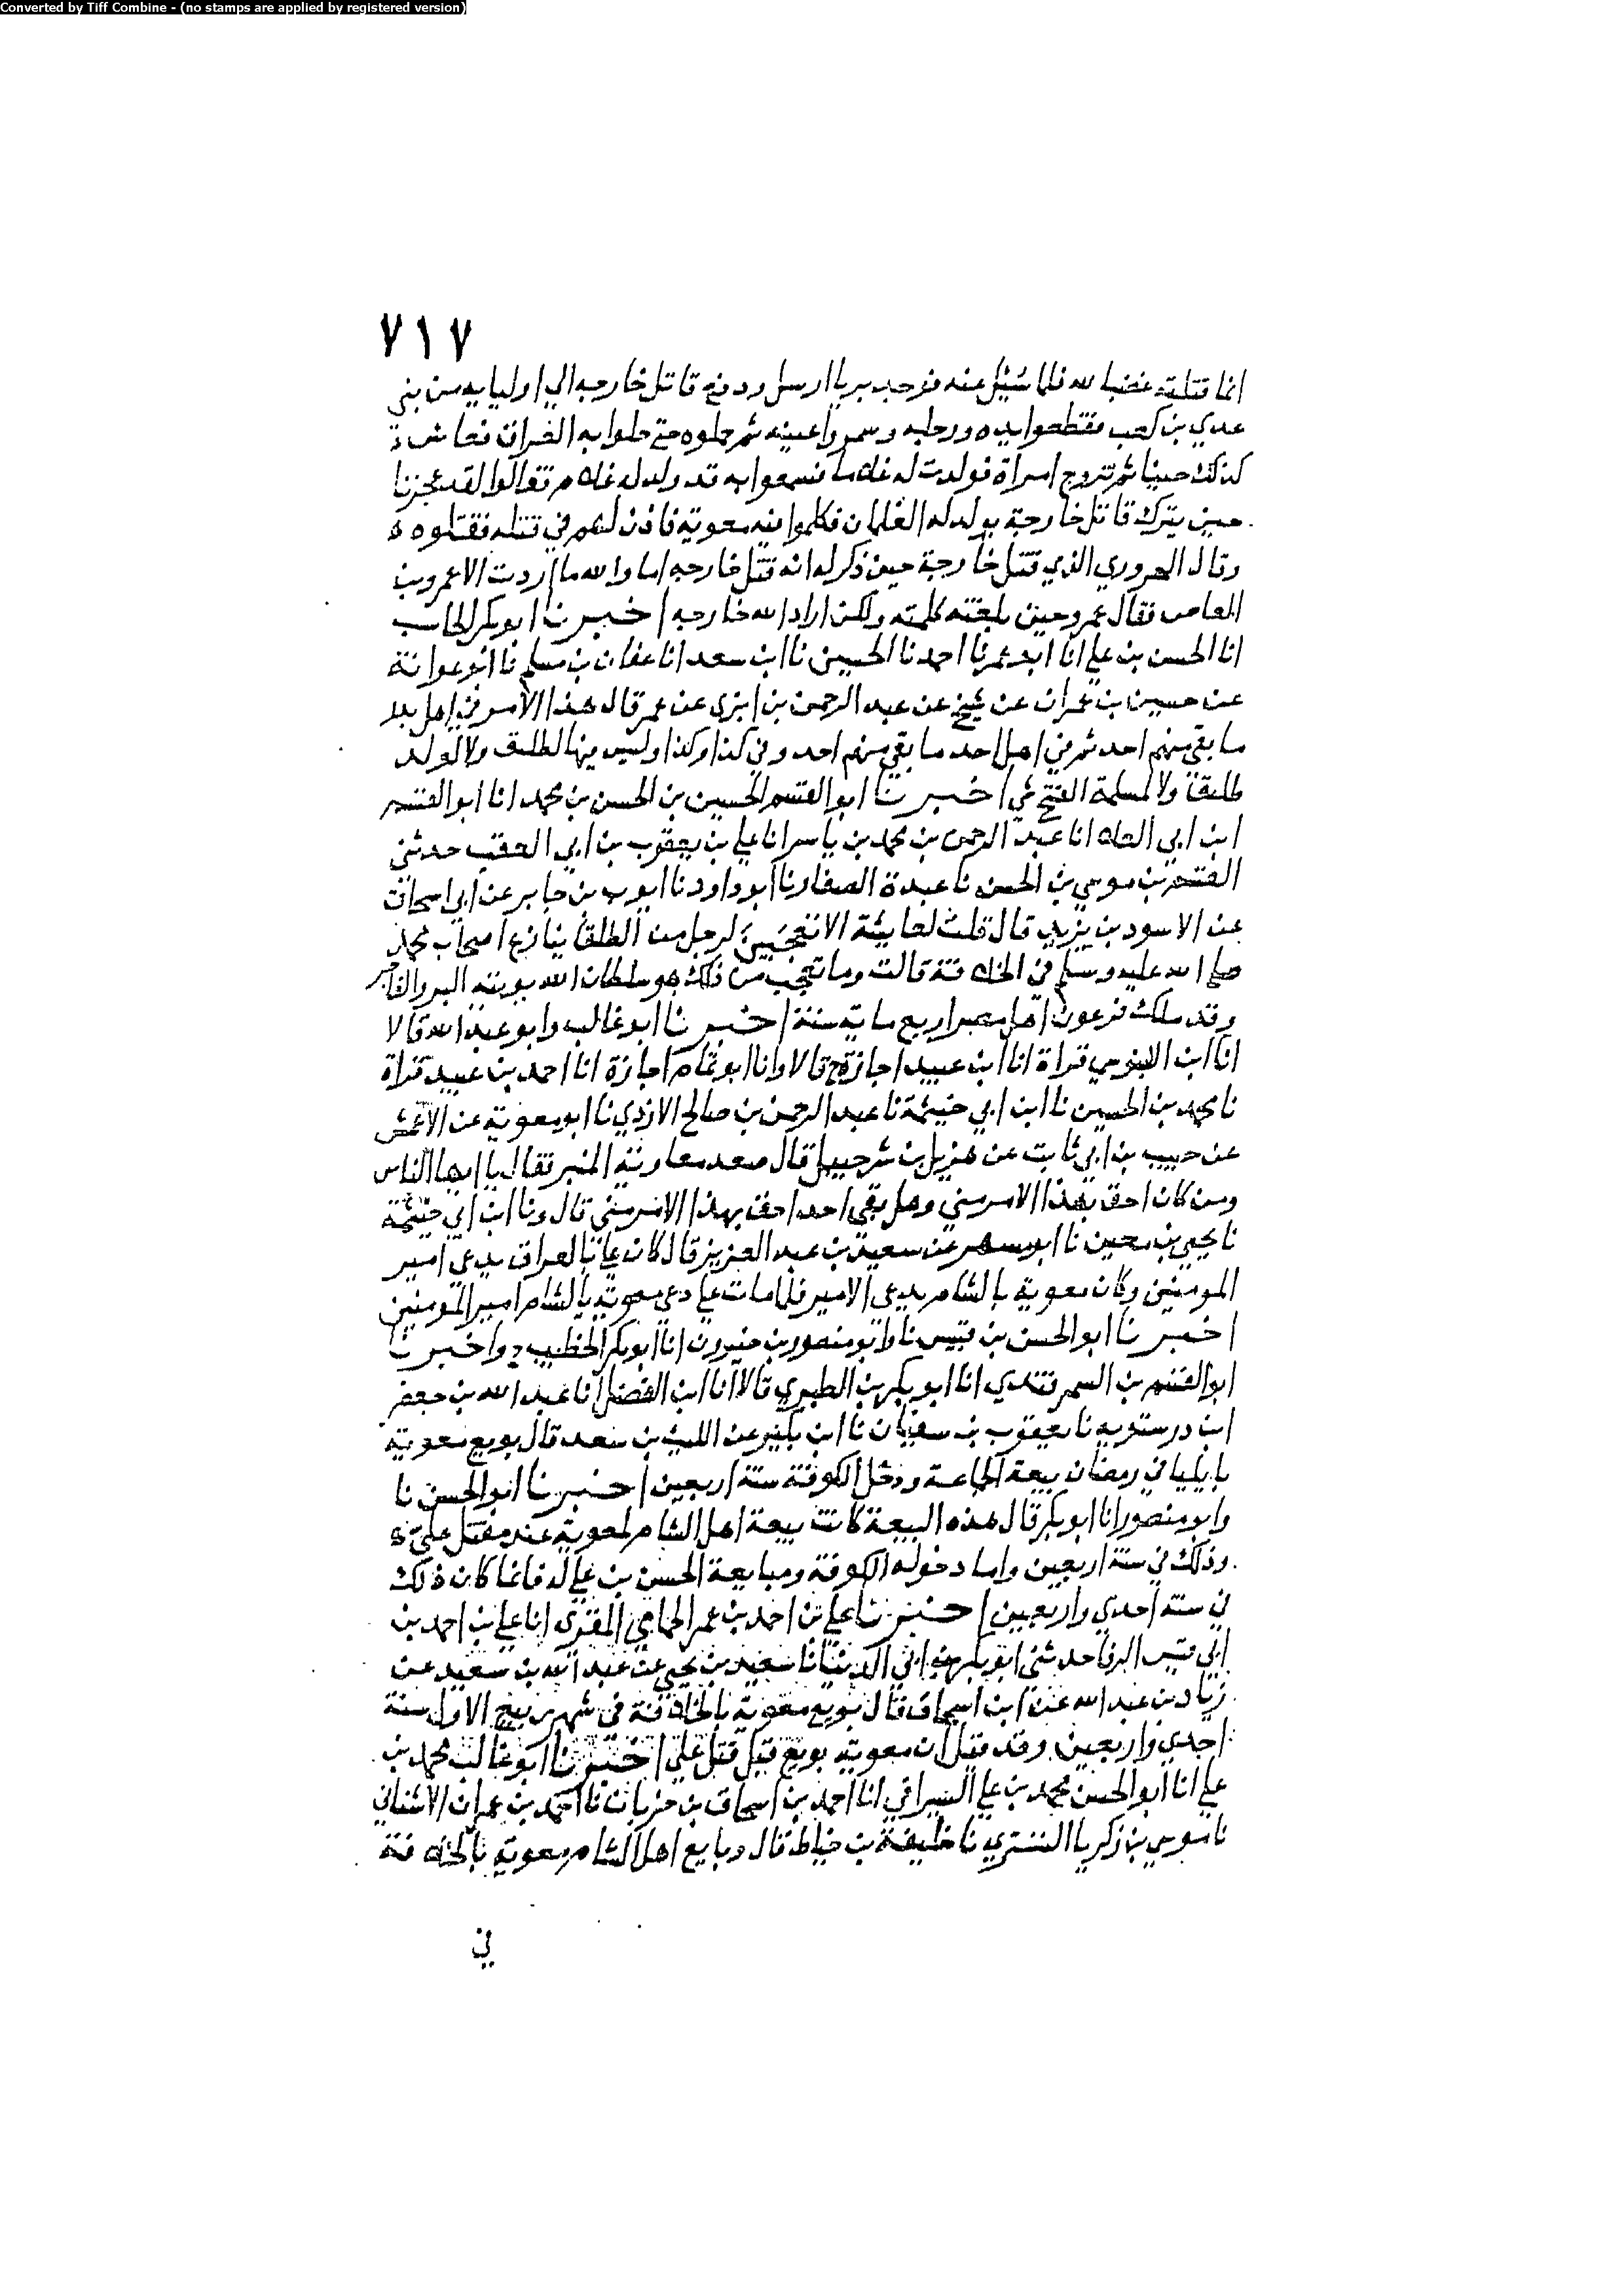 Converted by Tiff Combine - (no stamps are applied by registered version)
٧١٧
انما قتلته غضبا لله فلما سئل عنه فوجد بريا ارسل ودفع قاتل خارجه الي اوليايه من بني
عدي بن كعب فقطعوا يده ورجليه وسمروا عينيه ثم حملوه حتي حلوا به العراق فعاش
كذلك حينا ثم تزوج امراة فولدت له غلاما فسمعوا به قد ولد له غلام فقالوا لقد عجزنا
حين يترك قاتل خارجة يولد له الغلمان فكلموا فيه معوية فاذن لهم في قتله فقتلوه
وقال الحروري الذي قتل خارجة حين ذكر له انه قتل خارجه اما والله ما اردت الا عمرو بن
العاص فقال عمرو حين بلغته كلمته ولكن اراد الله خارجه اخبرنا ابو بكر الحاسب
انا الحسن بن علي انا ابو عمر نا احمد نا الحسين نا ابن سعد انا عفان بن مسلم نا ابو عوانة
عن حسين بن عمران عن شيخ عن عبد الرحمن بن ابزي عن عمر قال هذا الامر في اهل بدر
ما بقي منهم احد ثم في اهل احد ما بقي منهم احد وفي كذا وكذا وليس فيها لطليق ولا لولد
طليق ولا لمسلمة الفتح شي اخبرنا ابو القسم الحسين بن الحسن بن محمد انا ابو القسم
ابن ابي العلا انا عبد الرحمن بن محمد بن ياسر انا علي بن يعقوب بن ابي العقب حدثني
القسم بن موسي بن الحسن نا عبدة الصفار نا ابو داود نا ايوب بن جابر عن ابي اسحاق
عن الاسود بن يزيد قال قلت لعايشة الا تعجبين لرجل من الطلقا ينازع اصحاب محمد
صلي الله عليه وسلم في الخلافة قالت وما تعجب من ذلك هو سلطان الله يوتيه البر والفاجر
وقد ملك فرعون اهل مصر اربع ماية سنة اخبرنا ابو غالب وابو عبد الله قالا
انا ابن الابنوسي قراة انا ابن عبيد اجازة ح قالا وانا ابو تمام اجازة انا احمد بن عبيد قراة
نا محمد بن الحسين نا ابن ابي خيثمة نا عبد الرحمن بن صالح الازدي نا ابو معوية عن الاعمش
عن حبيب بن ابي ثابت عن هزيل بن شرحبيل قال صعد معاوية المنبر فقال يا ايها الناس
ومن كان احق بهذا الامر مني وهل بقي احد احق بهذا الامر مني قال ونا ابن ابي خيثمة
نا يحيي بن معين نا ابو مسهر عن سعيد بن عبد العزيز قال كان علي بالعراق يدعي امير
المومنين وكان معوية بالشام يدعي الامير فلما مات علي دعي معوية بالشام امير المومنين
اخبرنا ابو الحسن بن قبيس نا وابو منصور بن خيرون انا ابو بكر الخطيب ح واخبرنا
ابو القسم بن السمرقندي انا ابو بكر بن الطبري قالا انا ابن الفضل انا عبد الله بن جعفر
ابن درستويه نا يعقوب بن سفيان نا ابن بكير عن الليث بن سعد قال بويع معوية
بايليا في رمضان بيعة الجماعة ودخل الكوفة سنة اربعين اخبرنا ابو الحسن نا
وابو منصور انا ابو بكر قال هذه البيعة كانت بيعة اهل الشام لمعوية عند مقتل علي
وذلك في سنة اربعين واما دخوله الكوفة ومبايعة الحسن بن علي له فانما كان ذلك
في سنة احدي واربعين اخبرنا علي بن احمد بن عمر الحمامي المقري انا علي بن احمد بن
ابي قيس الرفا حدثني ابو بكر بن ابي الدنيا نا سعيد بن يحيي عن عبد الله بن سعيد عن
زياد بن عبد الله عن ابن اسحاق قال بويع معوية بالخلافة في شهر ربيع الاول سنة
احدي واربعين وقد قيل ان معوية بويع قبل قتل علي اخبرنا ابو غالب محمد بن
علي انا ابو الحسن محمد بن علي السيرافي انا احمد بن اسحاق بن خربان نا احمد بن عمران الاشناني
نا موسي بن زكريا التستري نا خليفة بن خياط قال وبايع اهل الشام معوية بالخلافة
في